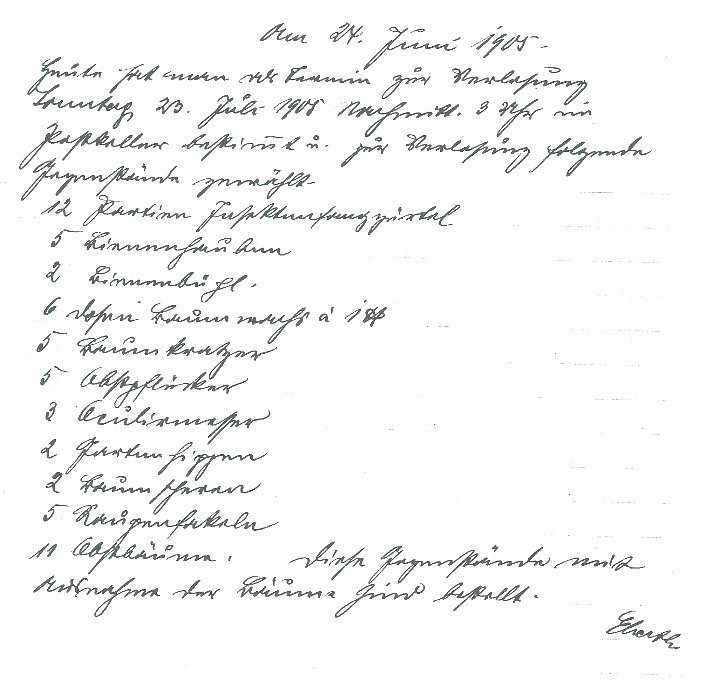 Am 24. Juni 1905.
Heute hat man als Termin zur Verlosung
Sonntag, 23. Juli 1905 Nachmitt. 3 Uhr im
Postkeller bestim̄t u. zur Verlosung folgende
Gegenstände gewählt
12 Partien Insektenfanggürtel
5 Bienenhauben
2 Bienenbüchl.
6 Dosen Baumwachs à 1 ℔
5 Baumkratzer
5 Obstpflücker
3 Oculirmesser
2 Gartenhippen
2 Baumscheren
5 Raupenfakeln
11 Obstbäume. Diese Gegenstände mit
Ausnahme der Bäume sind bestellt.